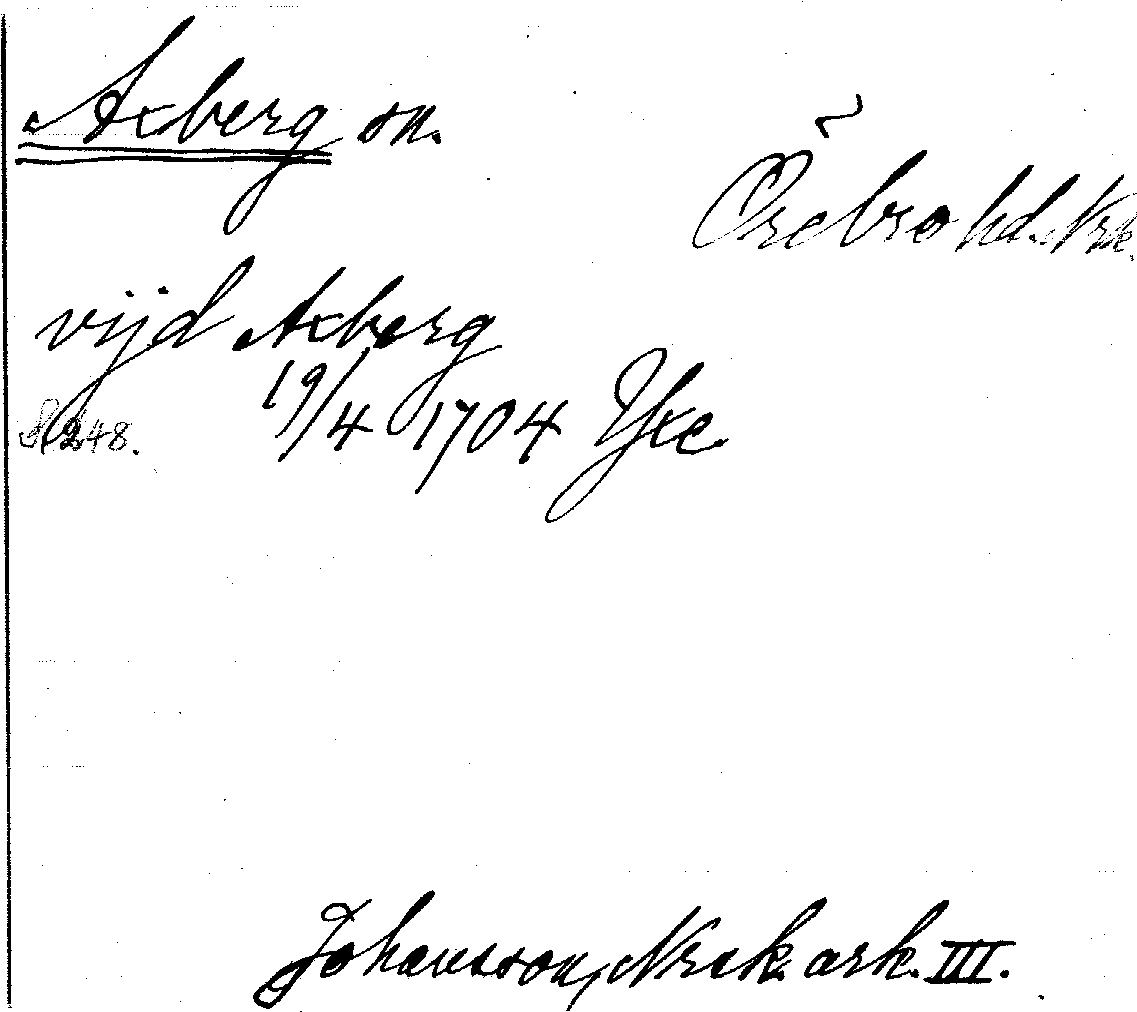 Axberg sn.
Örebro hd. Nrk.
vijd Axberg
19/4 1704 Yxe
S. 248.
Johansson, Nrek. ark. III.